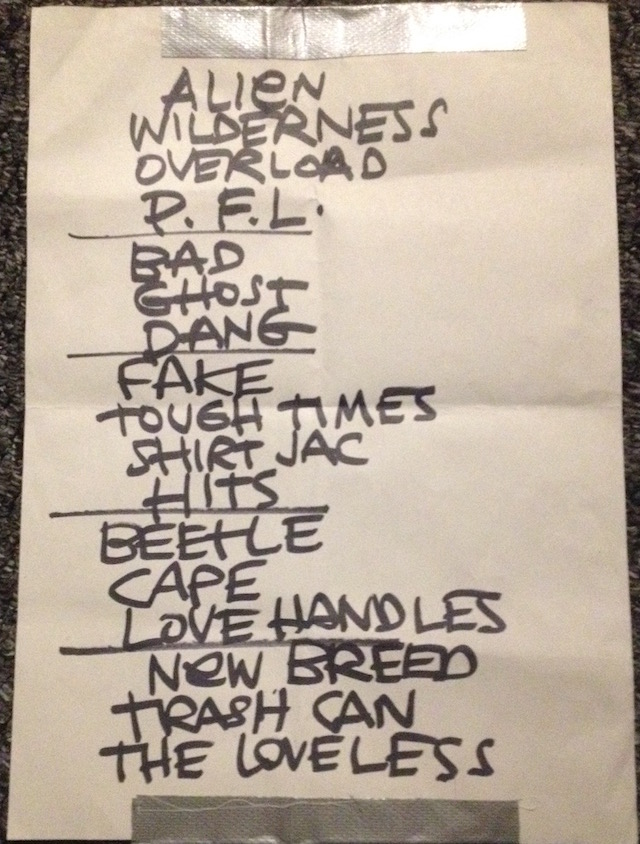 ALIEN
WILDERNESS
OVERLOAD
P.F.L.
BAD
GHOST
DANG
FAKE
TOUGH TIMES
SHIRT JAC
HITS
BEETLE
CAPE
LOVE HANDLES
NEW BREED
TRASH CAN
THE LOVELESS